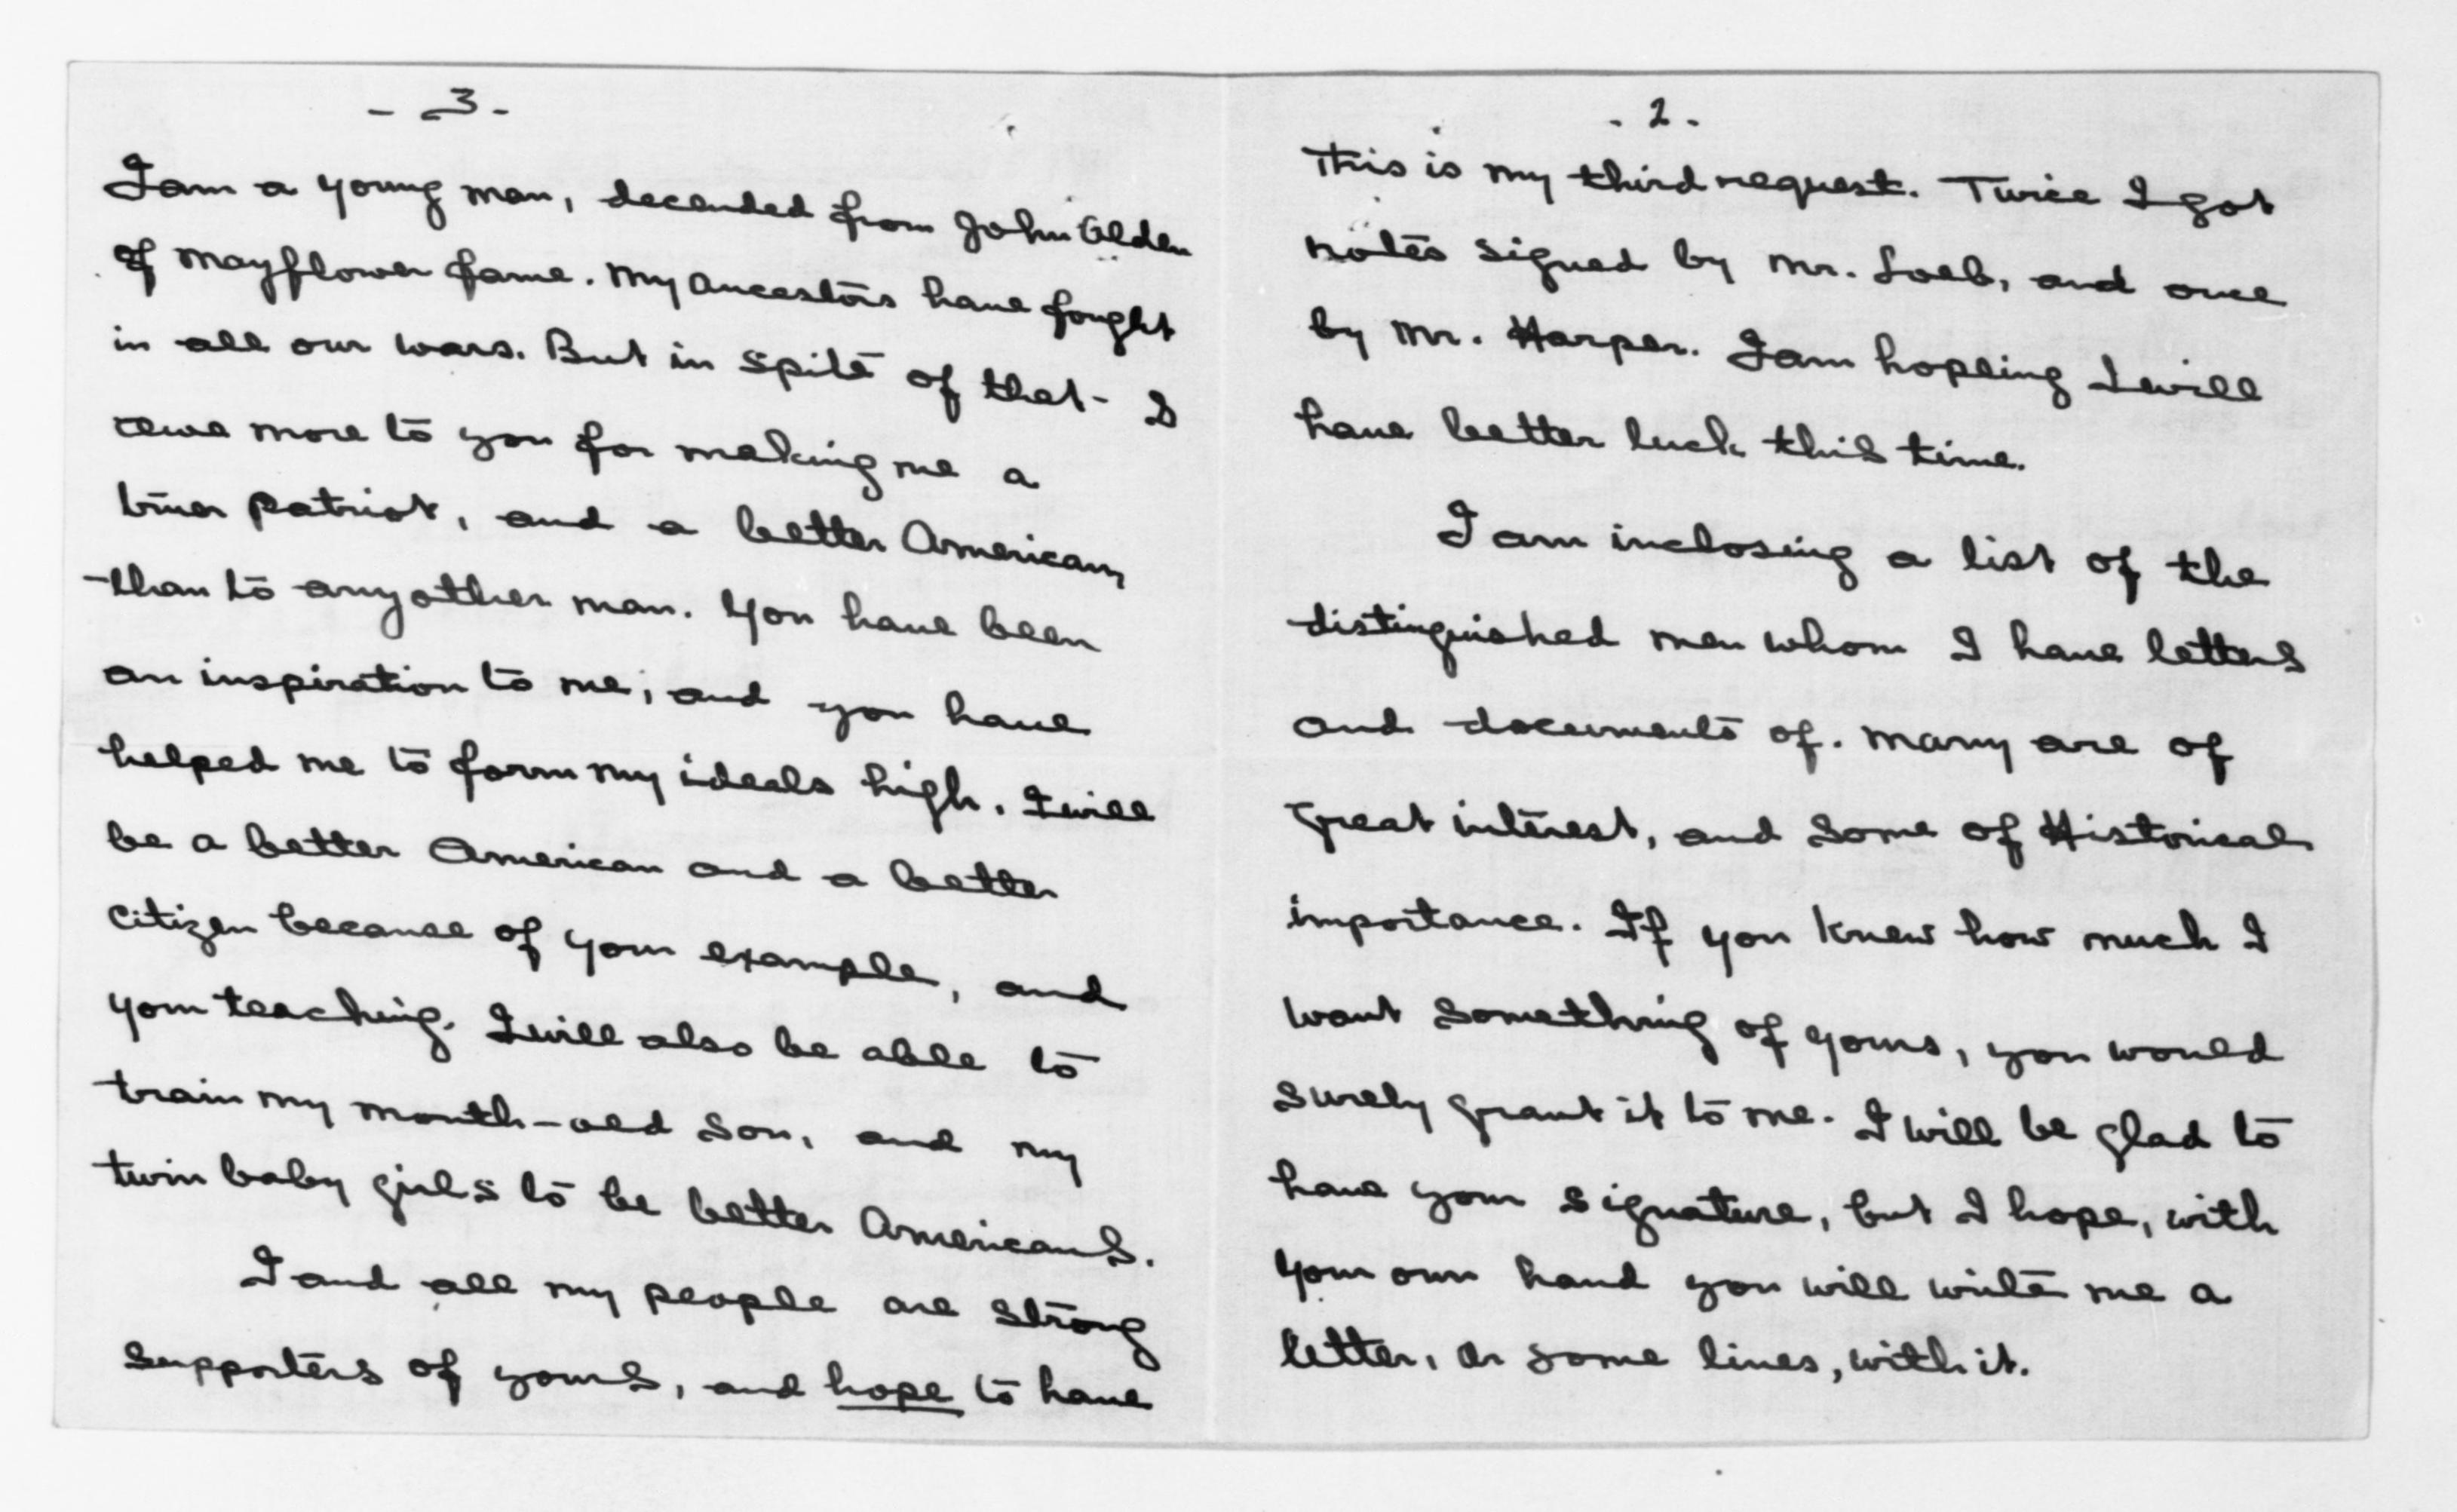 - 2 -
This is my third request. Twice I got
notes signed by Mr. Loeb, and once
by Mr. Harper. I am hopeing I will
have better luck this time.
I am inclosing a list of the
distinguished men whom I have letters
and documents of. Many are of
great interest, and some of Historical
importance. If you knew how much I
want something of yours, you would
surely grant it to me. I will be glad to
have your signature, but I hope, with
your own hand you will write me a
letter, or some lines, with it.
- 3 -
I am a young man, decended from John Alden
of Mayflower fame. My ancestors have fought
in all our wars. But in spite of that - I
owe more to you for making me a
truer patriot, and a better American,
than to any other man. You have been
an inspiration to me, and you have
helped me to form my ideals high. I will
be a better American and a better
citizen because of your example, and
your teaching. I will also be able to
train my month-old son, and my
twin baby girls to be better Americans.
I and all my people are strong
supporters of yours, and hope to have